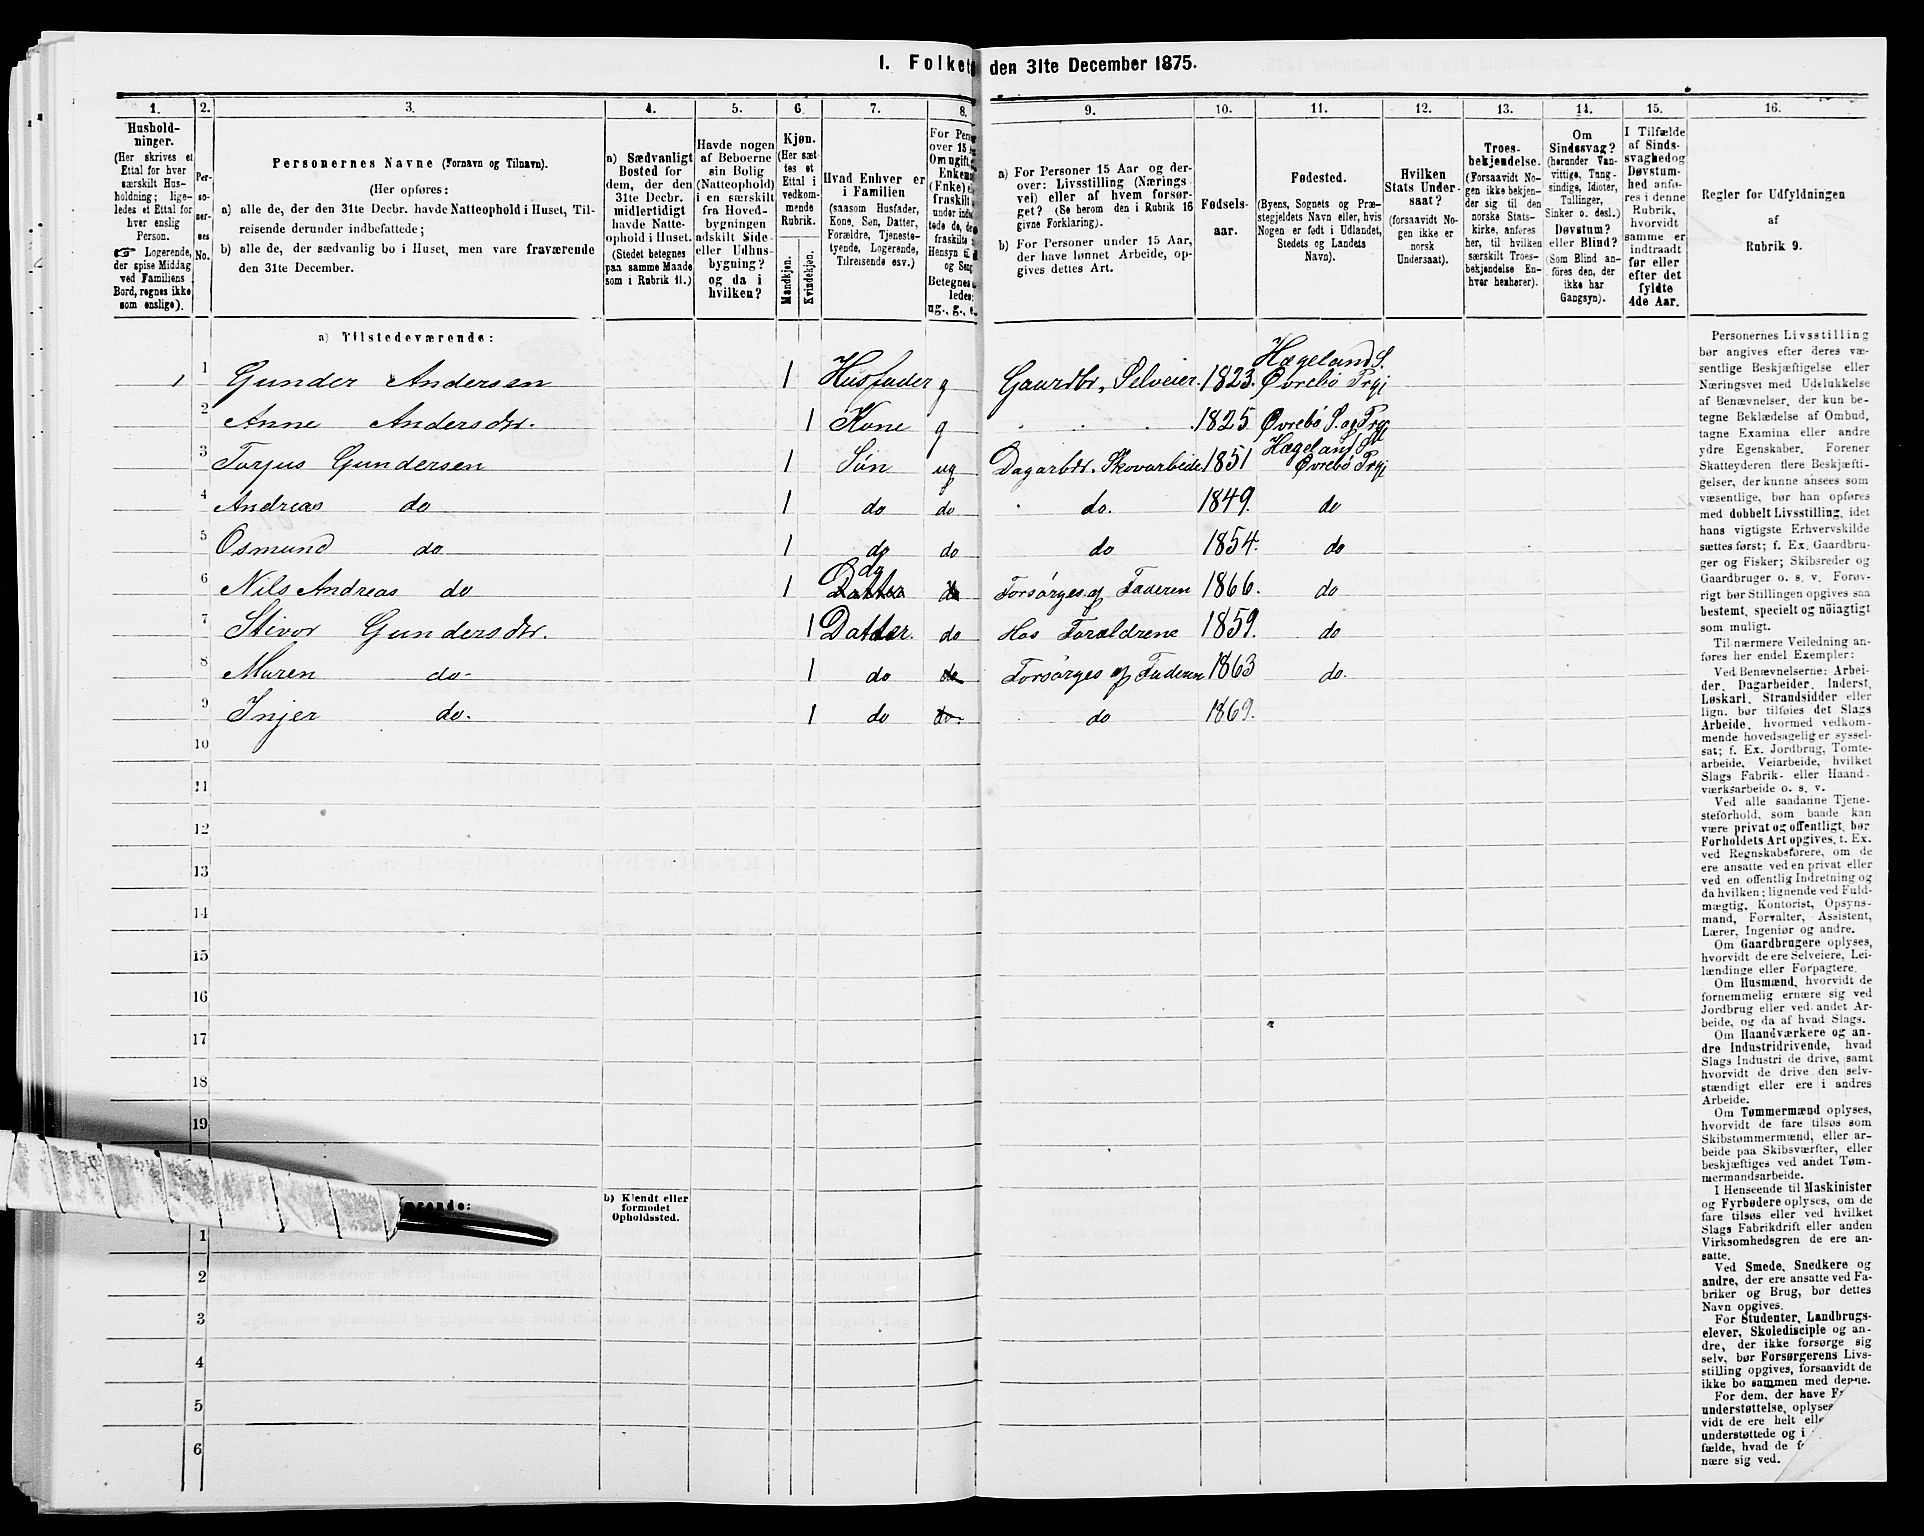 I. Folket den 31te December 1875.
1. 2. 3. 4. 5. 6. 7. 8. 9. 10. 11. 12. 13. 14. 15. 16.
Hushold-
ninger.
(Her skrives et
Ettal for hver
særskilt Hus-
holdning; lige-
ledes et Ettal for
hver enslig
Person.
☞ Logerende,
der spise Middag
ved Familiens
Bord, regnes ikke
som enslige).
Per-
so-
ner-
nes
No.
Personernes Navne (Fornavn og Tilnavn).
(Her opføres:
a) alle de, der den 31te Decbr. havde Natteophold i Huset, Til-
reisende derunder indbefattede;
b) alle de, der sædvanlig bo i Huset, men vare fraværende
den 31te December.
a) Sædvanligt
Bosted for
dem, der den
31te Decbr.
midlertidigt
havde Natte-
ophold i Huset.
(Stedet betegnes
paa samme Maade
som i Rubrik 11.)
Havde nogen
af Beboerne
sin Bolig
(Natteophold)
i en særskilt
fra Hoved-
bygningen
adskilt Side-
eller Udhus-
bygning?
og da i
hvilken?
Kjøn.
(Her sæt-
tes et
Ettal i
vedkom-
mende
Rubrik.
Mandkjøn.
Kvindekjøn.
Hvad Enhver er
i Familien
(saasom Husfader,
Kone, Søn, Datter,
Forældre, Tjeneste-
tyende, Logerende,
Tilreisende osv.)
For Perso
over 15 A
Om ugift, g
Enkem
(Enke) e
fraskilt
under indbe
tede de, de
fraskilte
Hensyn til
og Seng
Betegnes
ledes:
ug., g., e.
a) For Personer 15 Aar og der-
over: Livsstilling (Nærings-
vei) eller af hvem forsør-
get? (Se herom den i Rubrik 16
givne Forklaring).
b) For Personer under 15 Aar,
der have lønnet Arbeide, op-
gives dettes Art.
Fødsels-
aar.
Fødested.
(Byens, Sognets og Præ-
stegjeldets Navn eller, hvis
Nogen er født i Udlandet,
Stedets og Landets
Navn).
Hvilken
Stats Under-
saat?
(forsaavidt No-
gen ikke er
norsk
Undersaat).
Troes-
bekjendelse.
(Forsaavidt No-
gen ikke bekjen-
der sig til den
norske Stats-
kirke, anføres
her, til hvilken
særskilt Troes-
bekjendelse En-
hver henhører).
Om
Sindssvag?
(herunder Van-
vittige, Tung-
sindige, Idioter,
Tullinger,
Sinker o. desl.)
Døvstum?
eller Blind?
(Som Blind an-
føres den, der
ikke har
Gangsyn).
I Tilfælde
af Sinds-
svaghed og
Døvstum-
hed anfø-
res i denne
Rubrik,
hvorvidt
samme er
indtraadt
før eller
efter det
fyldte
4de Aar.
Regler for Udfyldningen
af
Rubrik 9.
a) Tilstedeværende:
1 1 Gunder Andersen 1 Husfader g Gaardbr. Selveier. 1823. Hægeland S. Øvrebø Prgj
2 Anne Andersdtr. 1 Kone g 1825 Øvrebø S. og Prgj
3 Torjus Gundersen 1 Søn ug Dagarbdr. Skovarbeide 1851 Hægeland S. Øvrebø Prgj
4 Andreas do 1 do do do. 1849. do
5 Osmund do 1 do do do 1854. do
6 Nils Andreas do 1 do Datter do Forsørges af Faderen 1866. do
7 Stivor Gundersdtr. 1 Datter. do Hos Forældrene 1859. do
8 Maren do 1 do do Forsørges af Faderen 1863 do.
9 Injer do. 1 do do. do 1869.
10
11
12
13
14
15
16
17
18
19
ærende:
b) Kjendt eller
formodet
Opholdssted.
1
2
3
4
5
6
Personernes Livsstilling
bør angives efter deres væ-
sentlige Beskjæftigelse eller
Næringsvei med Udelukkelse
af Benævnelser, der kun be-
tegne Beklædelse af Ombud,
tagne Examina eller andre
ydre Egenskaber. Forener
Skatteyderen flere Beskjæfti-
gelser, der kunne ansees som
væsentlige, bør han opføres
med dobbelt Livsstilling, idet
hans vigtigste Erhvervskilde
sættes først; f. Ex. Gaardbru-
ger og Fisker; Skibsreder og
Gaardbruger o. s. v. Forøv-
rigt bør Stillingen opgives saa
bestemt, specielt og nøiagtigt
som muligt.
Til nærmere Veiledning an-
føres her endel Exempler:
Ved Benævnelserne: Arbei-
der, Dagarbeider, Inderst,
Løskarl, Strandsidder eller
lign. bør tilføies det Slags
Arbeide, hvormed vedkom-
mende hovedsagelig er syssel-
sat; f. Ex. Jordbrug, Tomte-
arbeide, Veiarbeide, hvilket
Slags Fabrik- eller Haand-
værksarbeide o. s. v.
Ved alle saadanne Tjene-
steforhold, som baade kan
være privat og offentligt, bør
Forholdets Art opgives, t. Ex.
ved Regnskabsførere, om de
ere ansatte ved en privat eller
ved en offentlig Indretning og
da hvilken; lignende ved Fuld-
mægtig, Kontorist, Opsyns-
mand, Forvalter, Assistent,
Lærer, Ingeniør og andre.
Om Gaardbrugere oplyses,
hvorvidt de ere Selveiere, Lei-
lændinge eller Forpagtere.
Om Husmænd, hvorvidt de
fornemmelig ernære sig ved
Jordbrug eller ved andet Ar-
beide, og da af hvad Slags.
Om Haandværkere og an-
dre Industridrivende, hvad
Slags Industri de drive, samt
hvorvidt de drive den selv-
stændigt eller ere i andres
Arbeide.
Om Tømmermænd oplyses,
hvorvidt de fare tilsøs som
Skibstømmermænd, eller ar-
beide paa Skibsværfter, eller
beskjæftiges ved andet Tøm-
mermandsarbeide.
I Henseende til Maskinister
og Fyrbødere oplyses, om de
fare tilsøs eller ved hvilket
Slags Fabrikdrift eller anden
Virksomhedsgren de ere an-
satte.
Ved Smede, Snedkere og
andre, der ere ansatte ved Fa-
briker og Brug, bør dettes
Navn opgives.
For Studenter, Landbrugs-
elever, Skoledisciple og an-
dre, der ikke forsørge sig
selv, bør Forsørgerens Livs-
stilling opgives, forsaavidt de
ikke bo sammen med denne.
For dem, der have F
understøttelse, oplyses
vidt de ere helt elle
understøttede og i
fælde, hvad de f
nære sig ved.